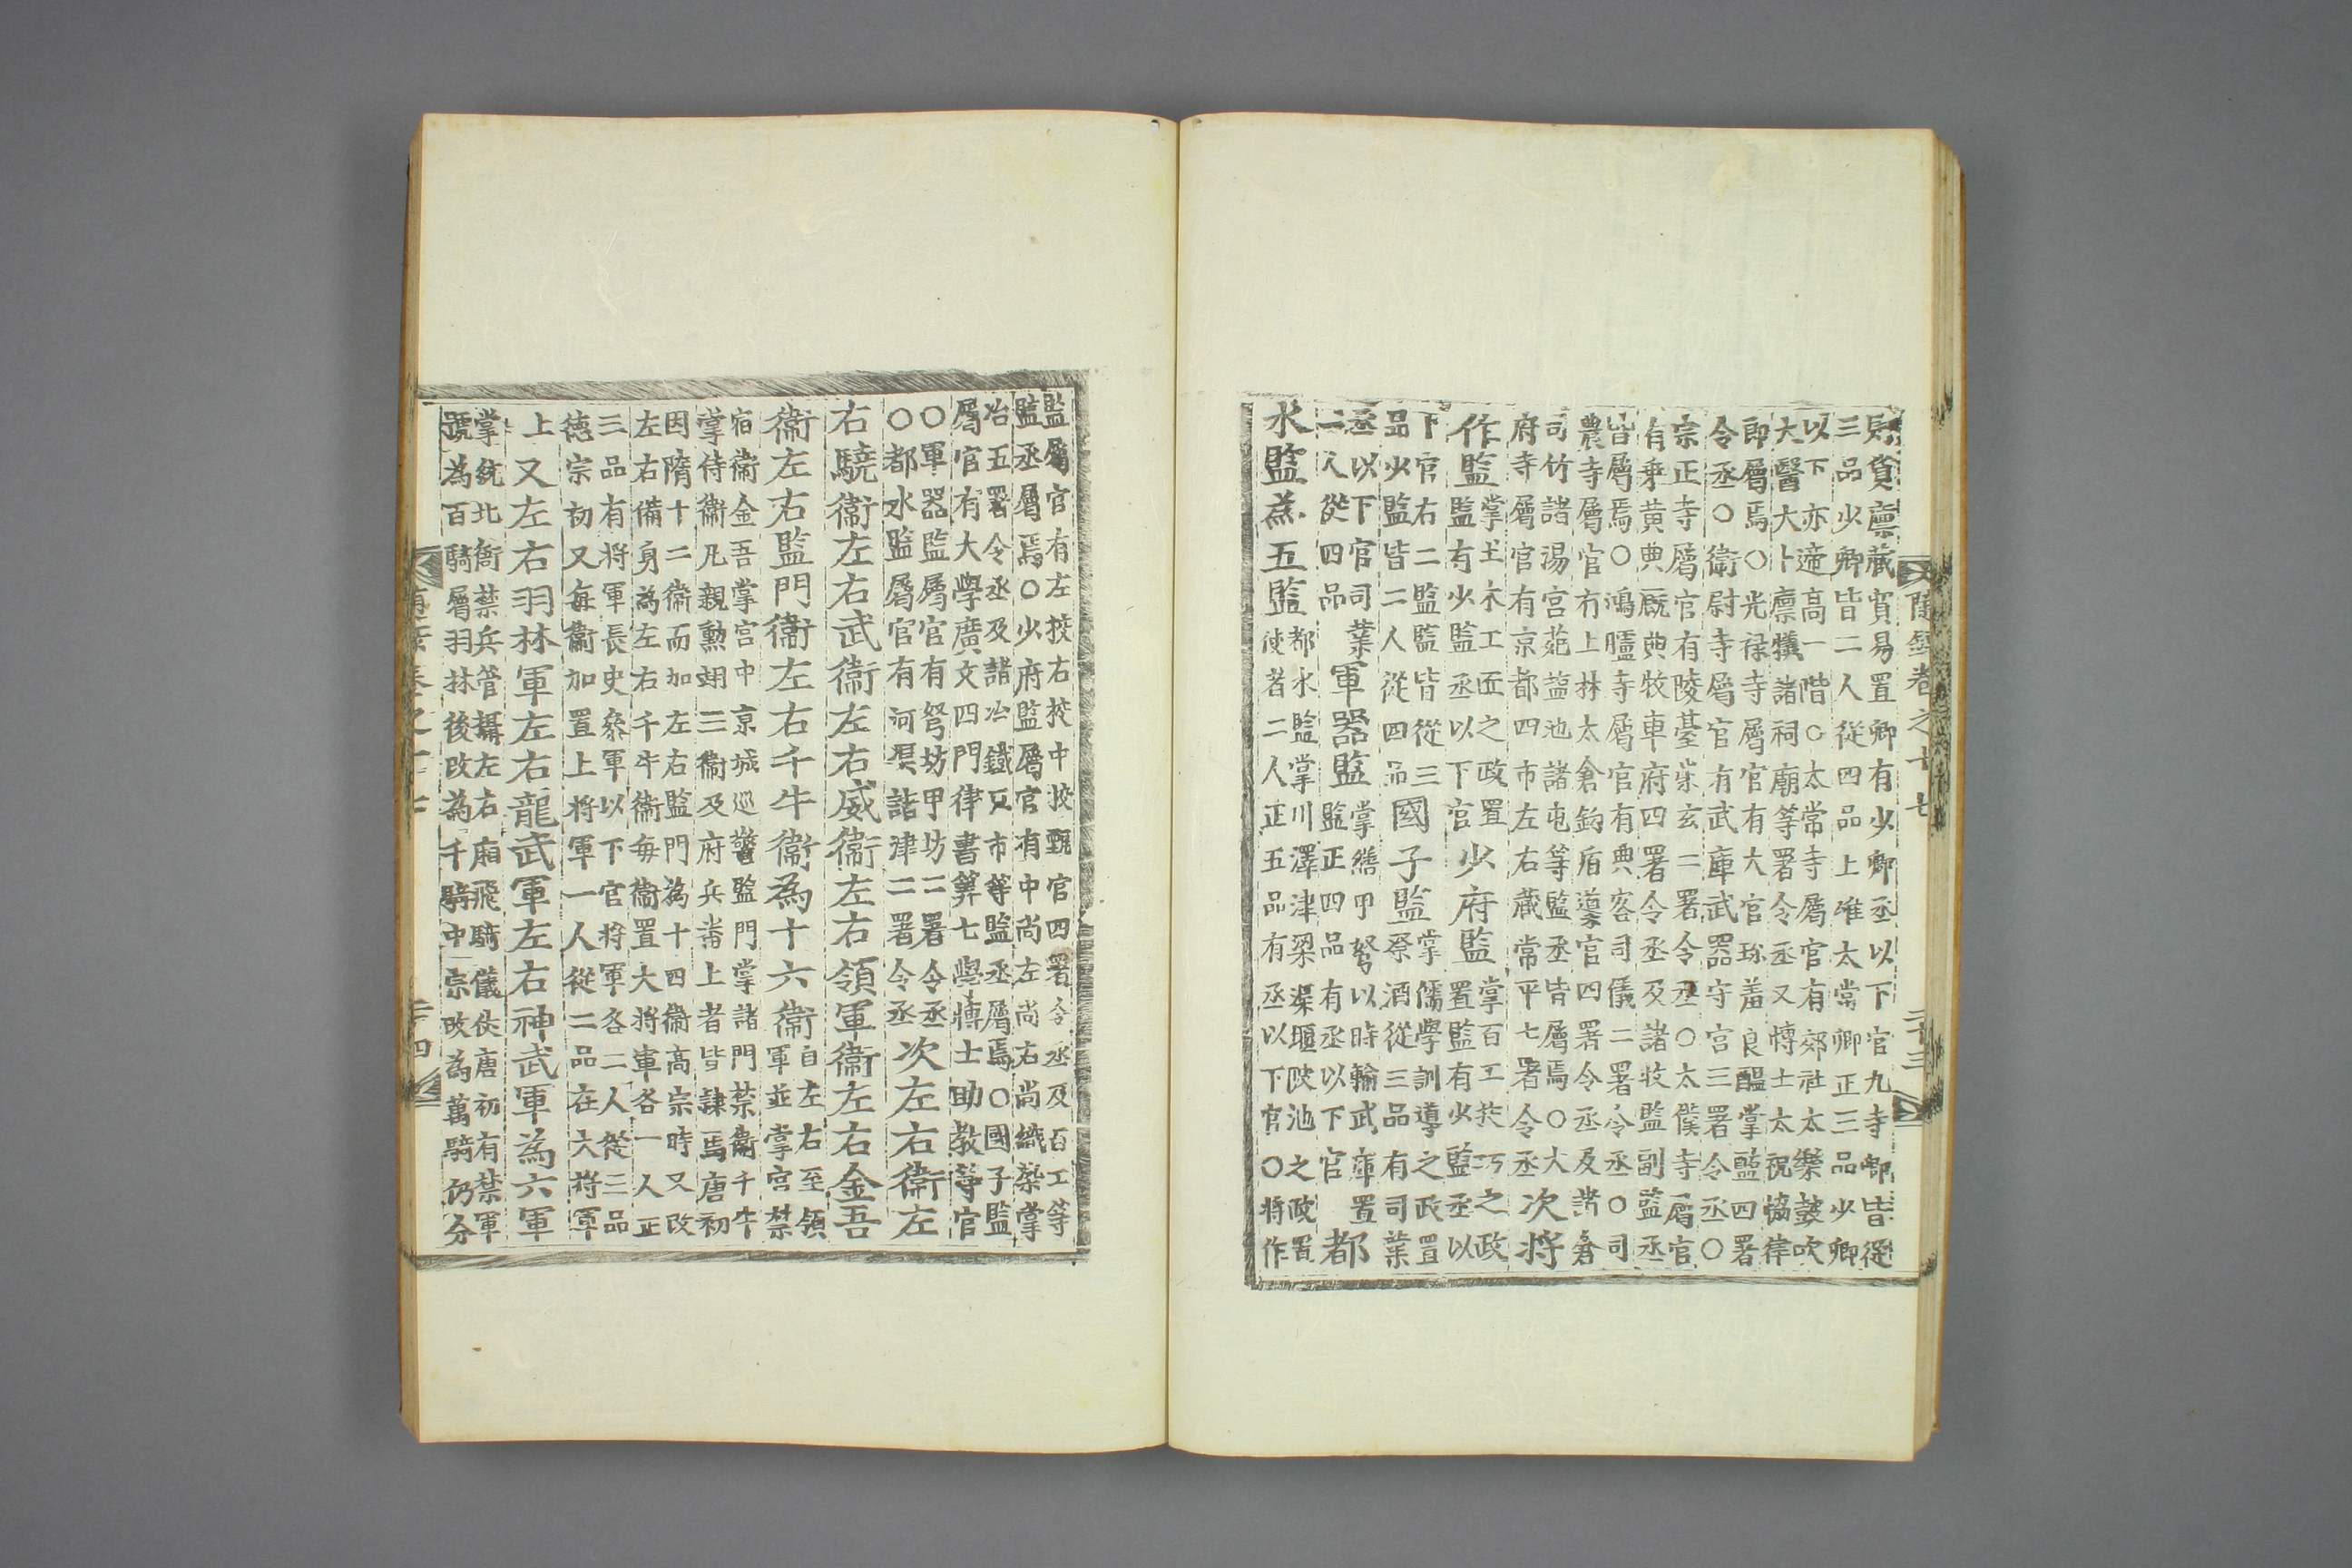 隨錄卷之十七
二十三
財貨廩藏貿易置卿有少卿丞以下官九寺卿皆從
三品少卿皆二人從四品上唯太常卿正三品少卿
以下亦遞高一階○太常寺屬官有郊社太樂鼓吹
大醫大卜廩犧諸祠廟等署令丞又博士太祝協律
即屬焉○光祿寺屬官有大官珎羞良醞掌醢四署
令丞○衛尉寺屬官有武庫武器守宮三署令丞○
宗正寺屬官有陵臺崇玄二署令丞○太僕寺屬官
有乘黃典廐典牧車府四署令丞及諸牧監副監丞
皆屬焉○鴻臚寺屬官有典客司儀二署令丞○司
農寺屬官有上林太倉鉤盾導官四署令丞及諸倉
司竹諸湯宮苑盐池諸屯等監丞皆屬焉○大
府寺屬官有京都四市左右藏常平七署令丞
次將
作監
掌土木工匠之政置
監有少監丞以下官
少府監
掌百工技巧之政
置監有少監丞以
下官右二監監皆從三
品少監皆二人從四品
國子監
掌儒學訓導之政置
祭酒從三品有司業
丞以下官司業
二人從四品
軍器監
掌繕甲弩以時輸武庫置
監正四品有丞以下官
都
水監爲五監
都水監掌川澤津梁渠堰陂池之政置
使者二人正五品有丞以下官○將作
監屬官有左挍右挍中挍甄官四署令丞及百工等
監丞屬焉○少府監屬官有中尙左尙右尙織染掌
冶五署令丞及諸冶鐵互市等監丞屬焉○國子監
屬官有大學廣文四門律書筭七學博士助敎等官
○軍器監屬官有弩坊甲坊二署令丞
○都水監屬官有河渠諸津二署令丞
次左右衛左
右驍衛左右武衛左右威衛左右領軍衛左右金吾
衛左右監門衛左右千牛衛爲十六衛
自左右至領
軍並掌宮禁
宿衛金吾掌宮中京城巡警監門掌諸門禁衛千牛
掌侍衛凡親勳翊三衛及府兵畨上者皆隷焉唐初
因隋十二衛而加左右監門爲十四衛高宗時又改
左右備身爲左右千牛衛每衛置大將軍各一人正
三品有將軍長史叅軍以下官將軍各二人從三品
德宗初又每衛加置上將軍一人從二品在大將軍
上
又左右羽林軍左右龍武軍左右神武軍爲六軍
掌統北衙禁兵管攝左右廂飛騎儀仗唐初有禁軍
號爲百騎屬羽林後改爲千騎中宗改爲萬騎仍分
二十四